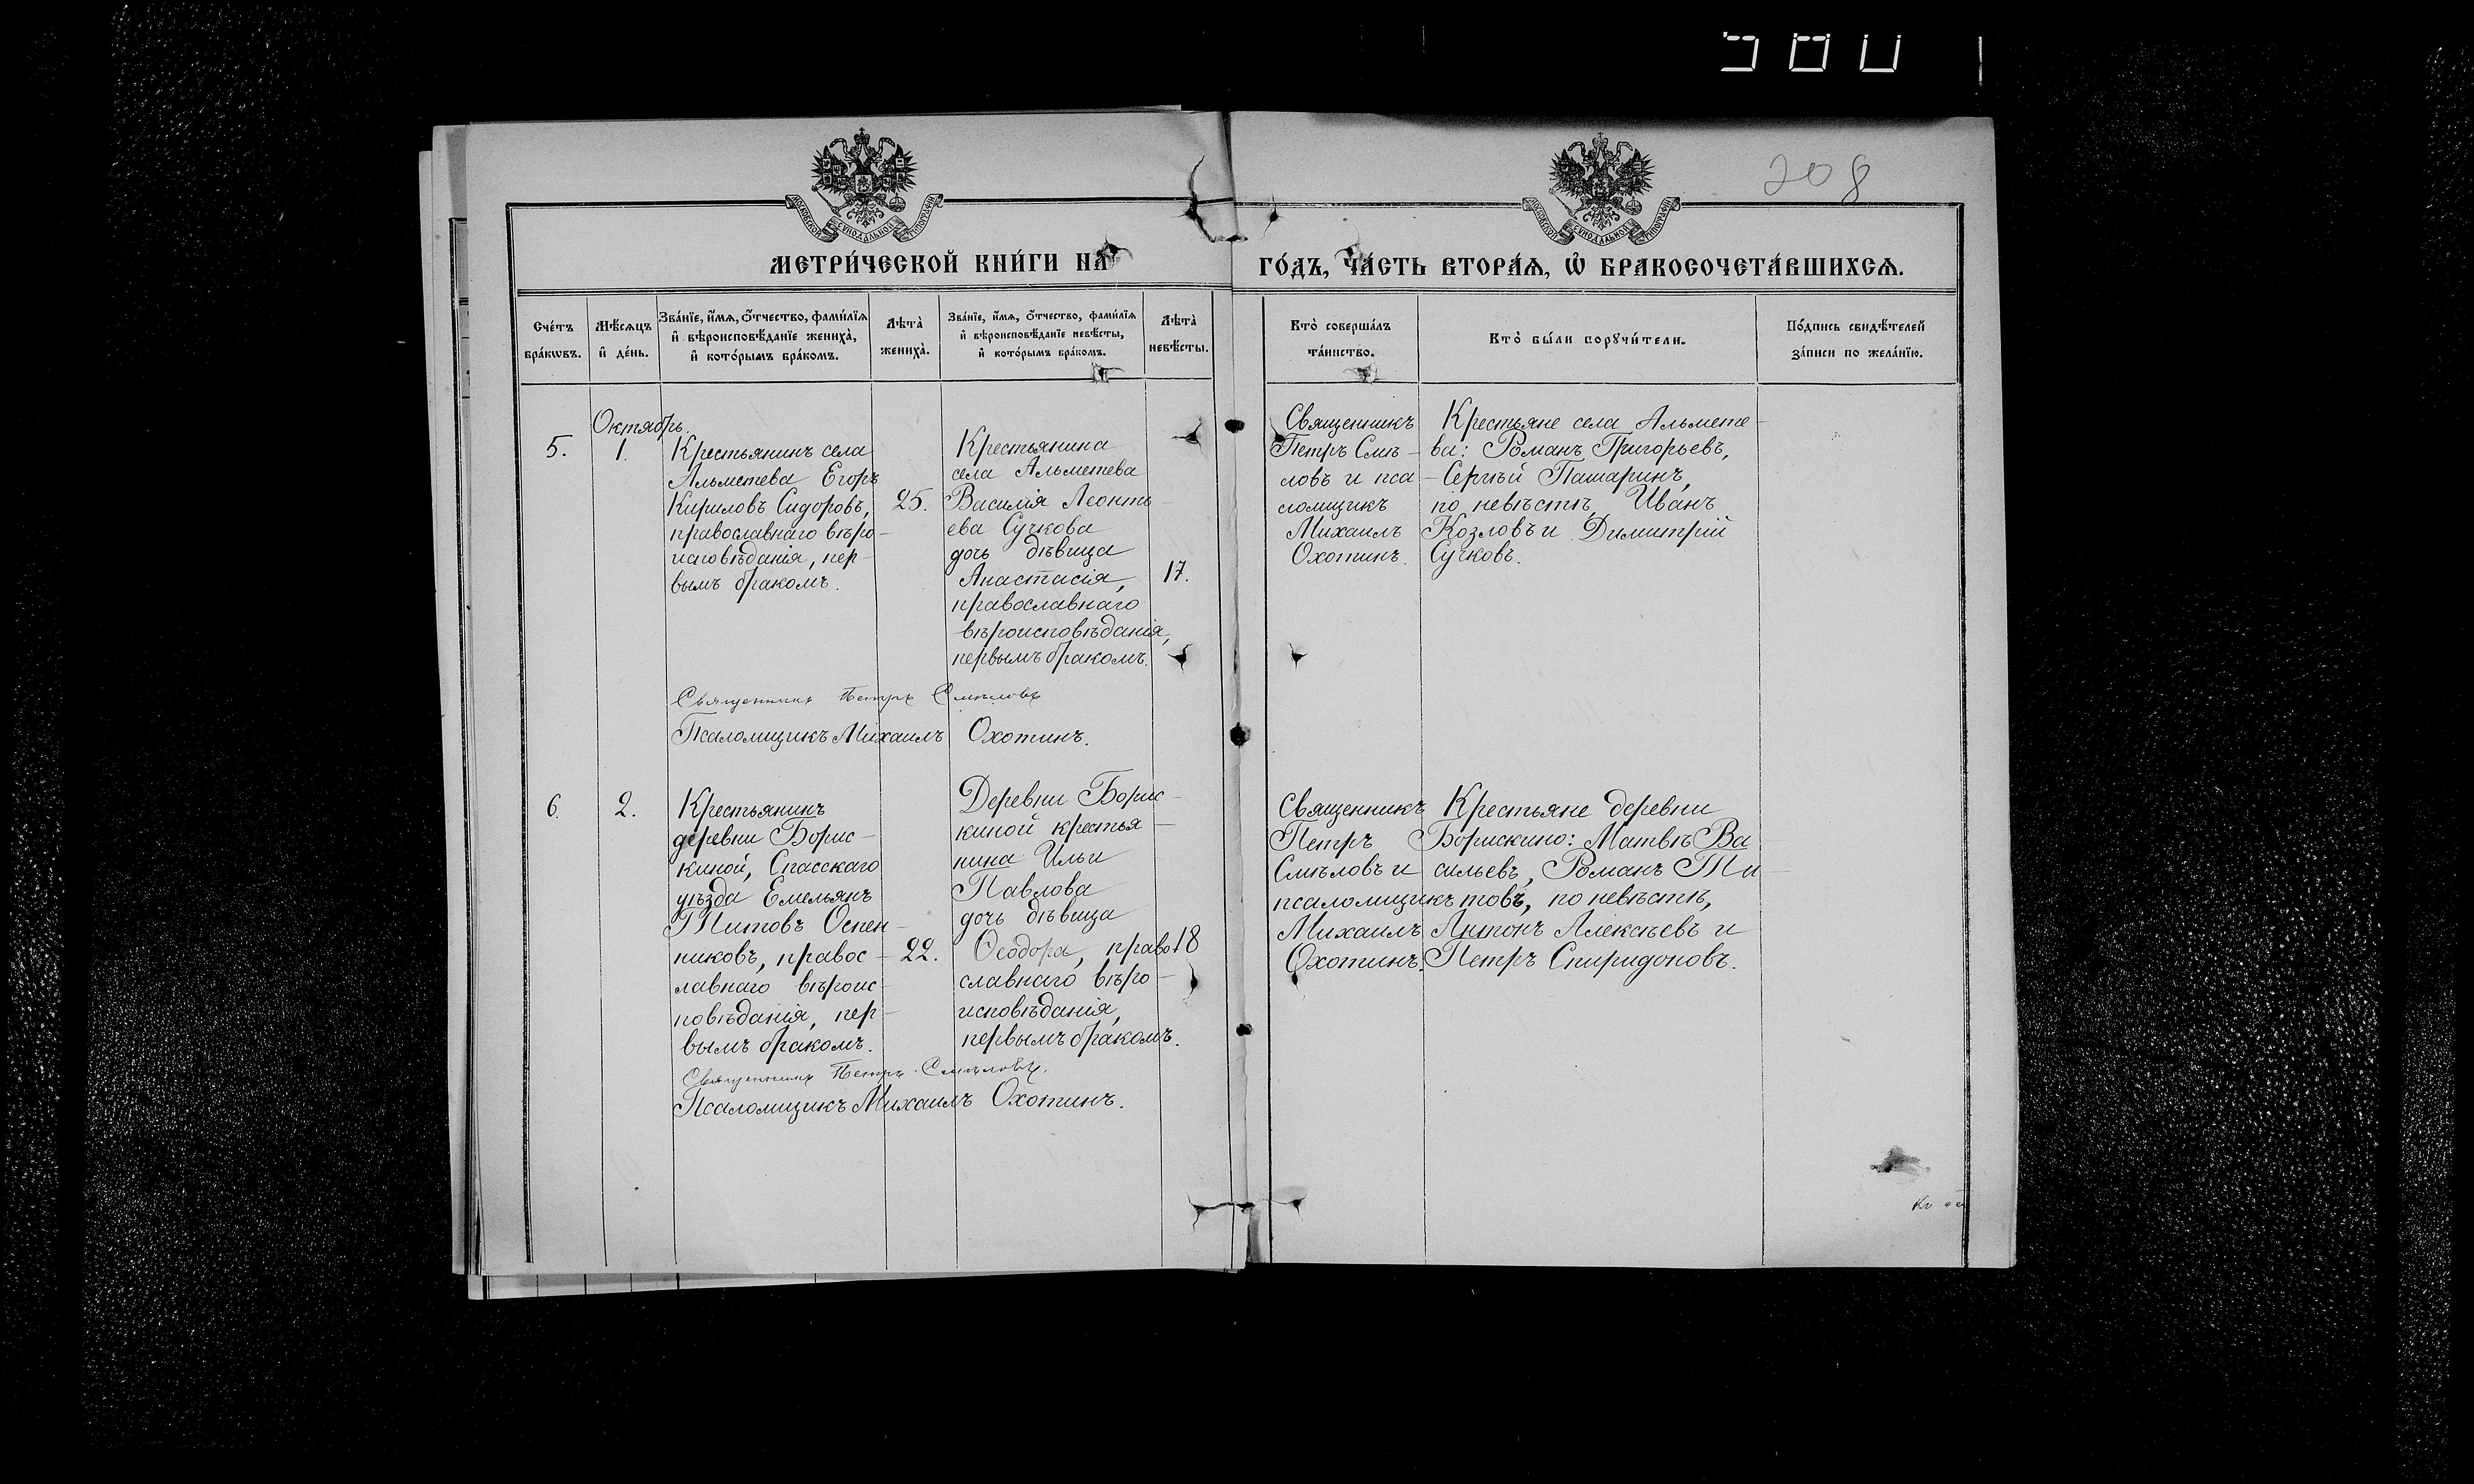 208
МОСКОВСКОЙ СУНОДАЛЬНОЙ ТИПОГРАФІИ
МОСКОВСКОЙ СУНОДАЛЬНОЙ ТИПОГРАФІИ
МЕТРИ́ЧЕСКОЙ КНИ́ГИ НА
ГО́ДЪ, ЧА́СТЬ ВТОРА́Ѧ, Ѡ БРАКОСОЧЕТА́ВШИХСѦ.
Сче́тъ
бра́кѡвъ.
Мѣ́сѧцъ
и҆ де́нь.
Зва́нїе, и҆́мѧ, ѻ҆́тчество, фами́лїѧ
и҆ вѣроисповѣ́данїе жениха̀,
и҆ кото́рымъ бра́комъ.
Лѣта̀
жениха̀.
Зва́нїе, и҆́мѧ, ѻ҆́тчество, фами́лїѧ
и҆ вѣроисповѣ́данїе невѣ́сты,
и҆ кото́рымъ бра́комъ.
Лѣта̀
невѣ́сты.
Кто̀ соверша́лъ
та́инство.
Кто̀ бы́ли порꙋчи́тели.
По́дпись свидѣ́телей
за́писи по жела́нїю.
Октябрь.
5.
1.
Крестьянинъ села
Альметева Егоръ
Кириловъ Сидоровъ,
православнаго вѣро-
исповѣданія, пер-
вымъ бракомъ.
25.
Крестьянина
села Альметева
Василія Леонть-
ева Сучкова
дочь дѣвица
Анастасія,
православнаго
вѣроисповѣданія,
первымъ бракомъ.
17.
Священникъ
Петръ Смѣ-
ловъ и пса-
ломщикъ
Михаилъ
Охотинъ.
Крестьяне села Альмете-
ва: Романъ Григорьевъ,
Сергѣй Пашаринъ,
по невѣстѣ, Иванъ
Козловъ и Димитрій
Сучковъ.
Священникъ Петръ Смѣловъ
Псаломщикъ Михаилъ Охотинъ.
6.
2.
Крестьянинъ
деревни Борис-
киной, Спасскаго
уѣзда Емельянъ
Титовъ Оспен-
никовъ, правос-
лавнаго вѣроис-
повѣданія, пер-
вымъ бракомъ.
22.
Деревни Борис-
киной крестья-
нина Ильи
Павлова
дочь дѣвица
Ѳеодора, право-
славнаго вѣро-
исповѣданія,
первымъ бракомъ.
18
Священникъ
Петръ
Смѣловъ и
псаломщикъ
Михаилъ
Охотинъ.
Крестьяне деревни
Борискино: Матвѣ Ва
сильевъ, Романъ Ти-
товъ, по невѣстѣ,
Антонъ Алексѣевъ и
Петръ Спиридоновъ.
Священникъ Петръ Смѣловъ.
Псаломщикъ Михаилъ Охотинъ.